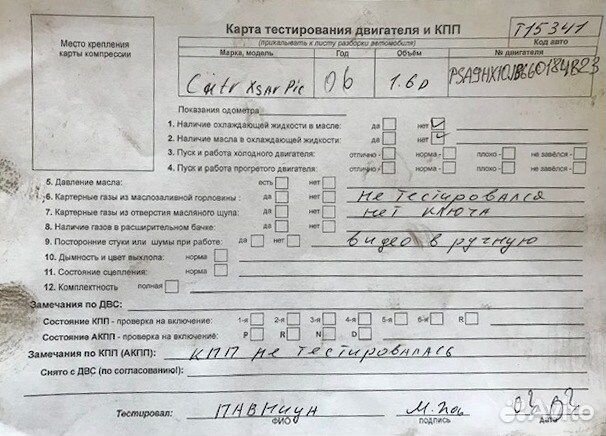 Карта тестирования двигателя и КПП
Т15341
(прикалывать к листу разборки автомобиля)
Код авто
Место крепления
карты компрессии
Марка, модель
Год
Объём
№ двигателя
Citr Xsar Pic
06
1.6D
Показания одометра
1. Наличие охлаждающей жидкости в масле: да нет
2. Наличие масла в охлаждающей жидкости: да нет
3. Пуск и работа холодного двигателя: отлично - норма - плохо - не завёлся -
4. Пуск и работа прогретого двигателя: отлично - норма - плохо - не завёлся -
5. Давление масла: есть нет
6. Картерные газы из маслозаливной горловины : да нет не тестировался
7. Картерные газы из отверстия масляного щупа: да нет нет ключа
8. Наличие газов в расширительном бачке: да нет
9. Посторонние стуки или шумы при работе: да нет видео в ручную
10. Дымность и цвет выхлопа: норма
11. Состояние сцепления: норма
12. Комплектность полная
Замечания по ДВС:
Состояние КПП - проверка на включение: 1-я 2-я 3-я 4-я 5-я 6-я R
Состояние АКПП - проверка на включение: P R N D
Замечания по КПП (АКПП): КПП не тестировалась
Снято с ДВС (по согласованию!):
Тестировал:
ФИО
подпись
дата
Avito